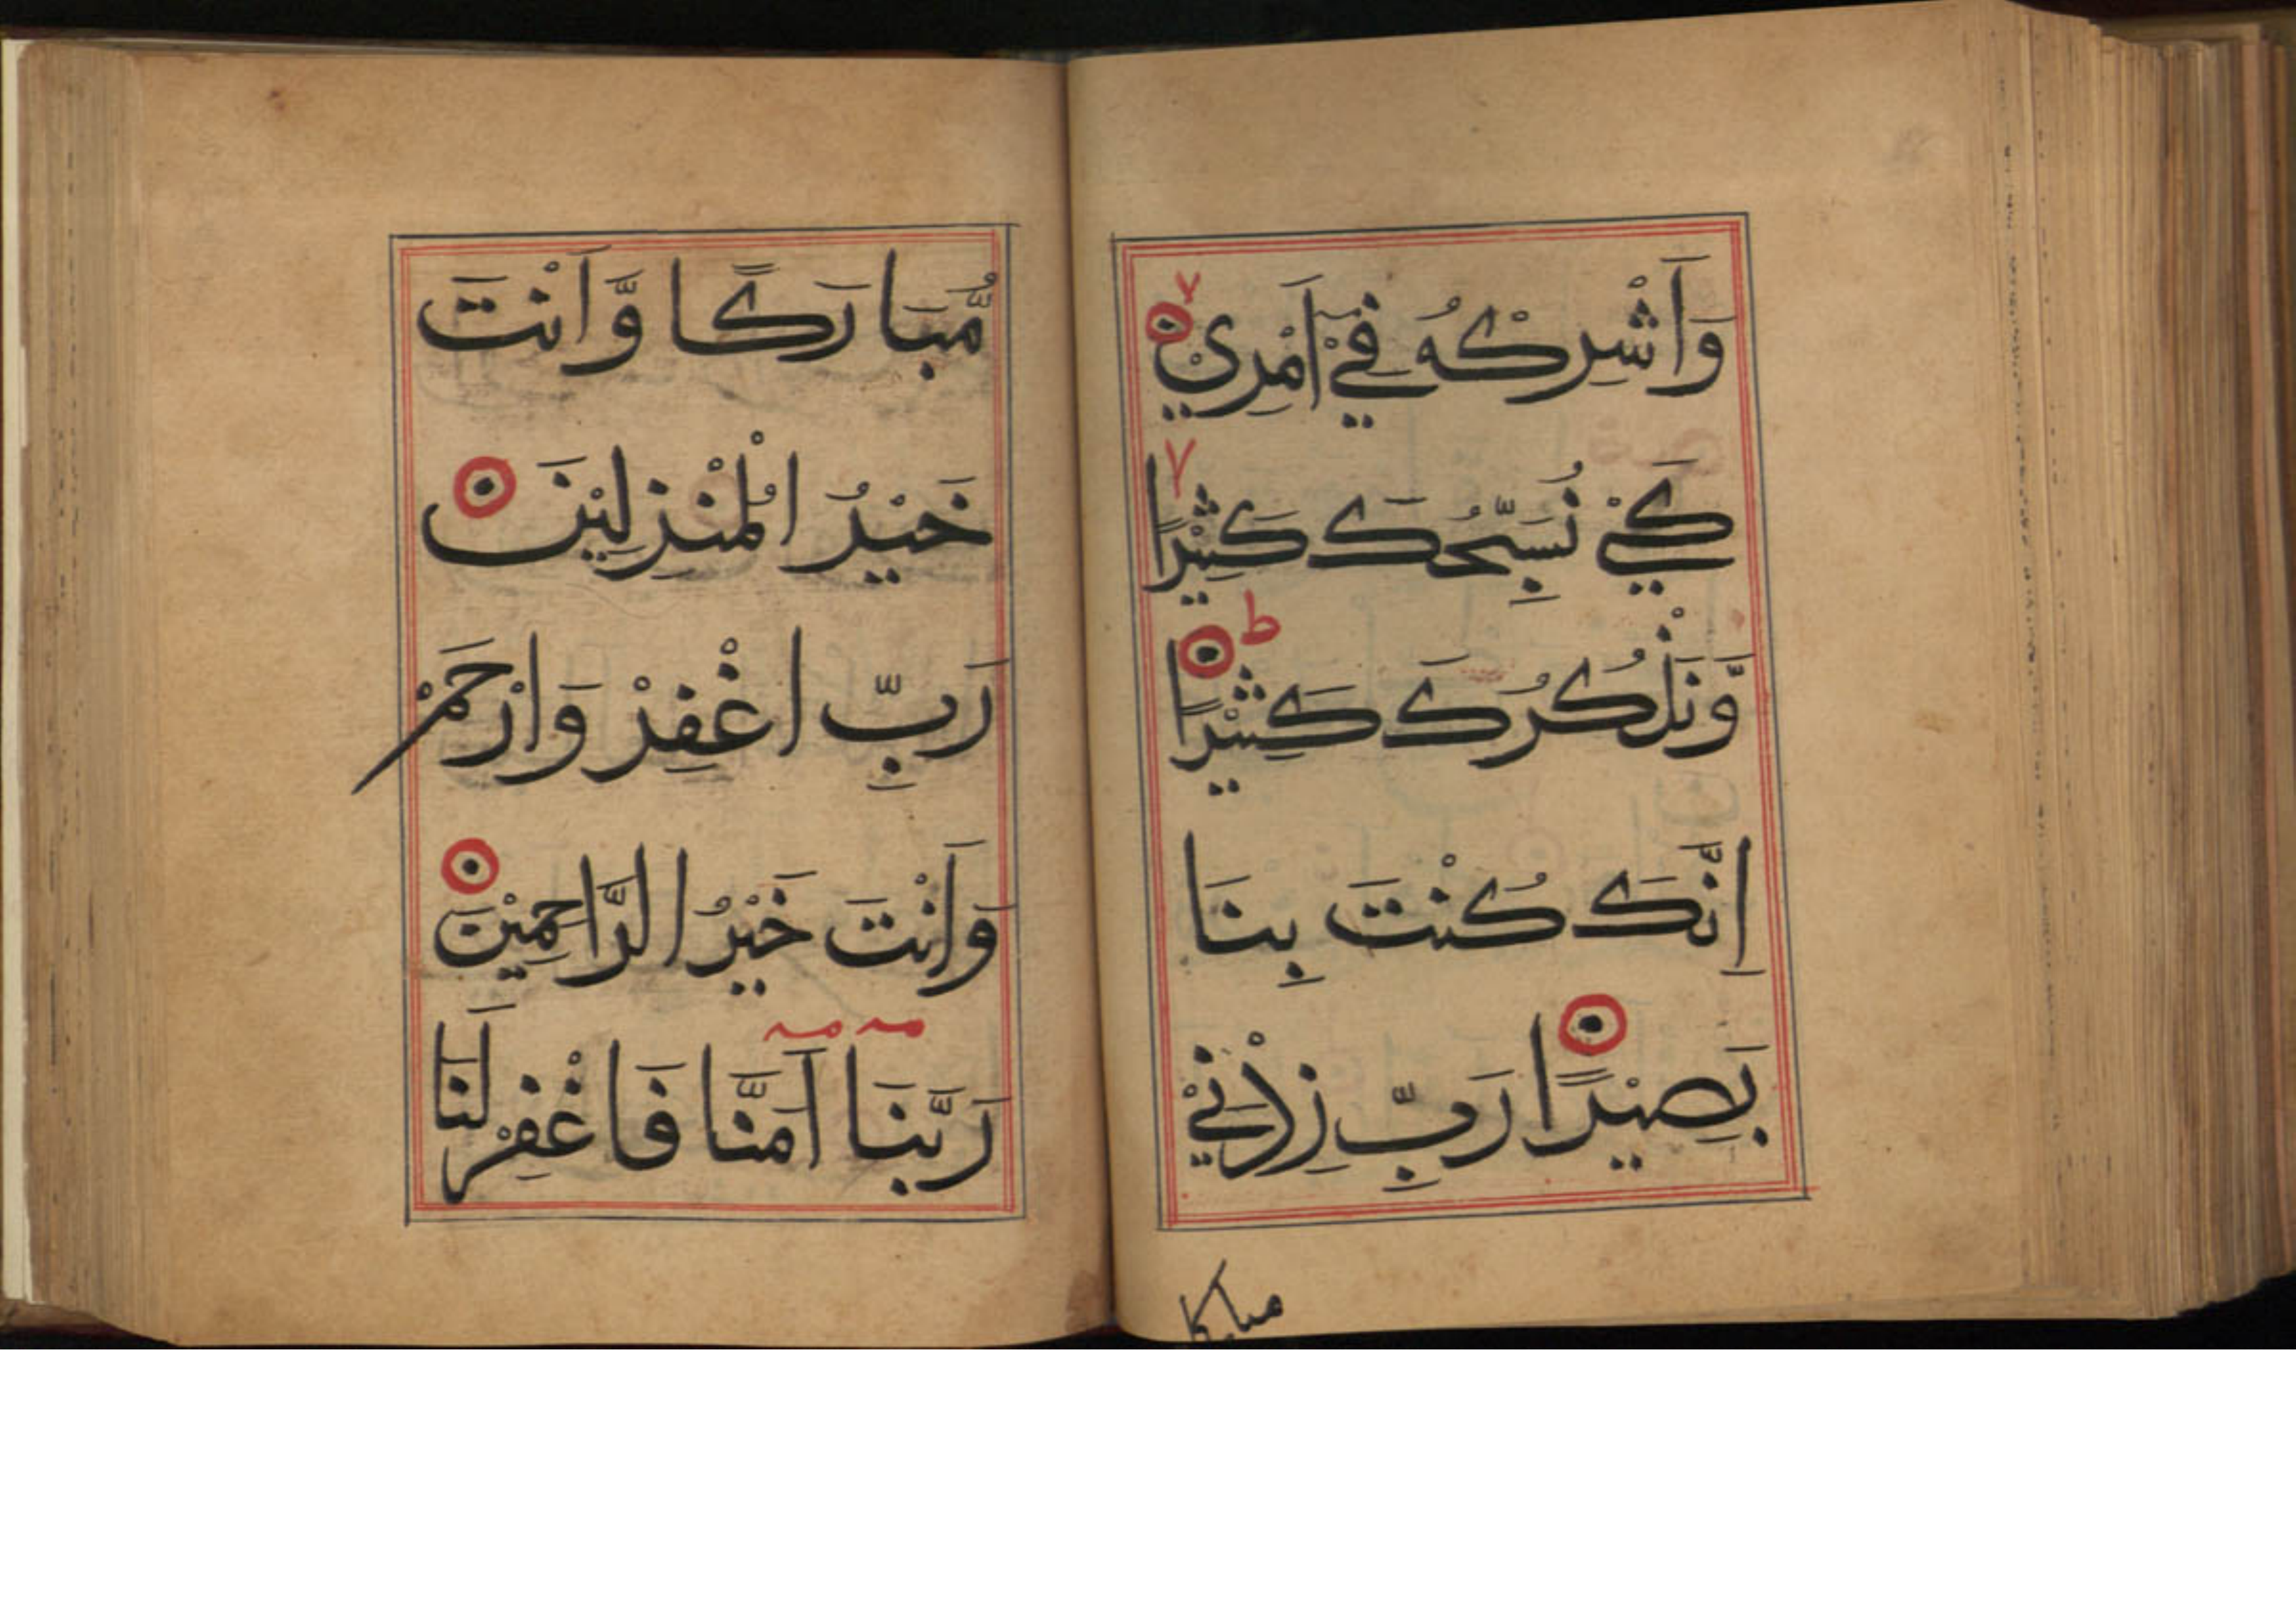 وَاَشْرِكْهُ فِيْ اَمْرِيْ
كَيْ نُسَبِّحَكَ كَثِيْرًا
وَّنَذْكُرَكَ كَثِيْرًا ط
اِنَّكَ كُنْتَ بِنَا
بَصِيْرًا رَبِّ زِدْنِيْ
مباركا
مُّبَارَكًا وَّاَنْتَ
خَيْرُ الْمُنْزِلِيْنَ
رَبِّ اغْفِرْ وَارْحَمْ
وَاَنْتَ خَيْرُ الرَّاحِمِيْنَ
رَبَّنَا اَمَنَّا فَاغْفِرْ لَنَا